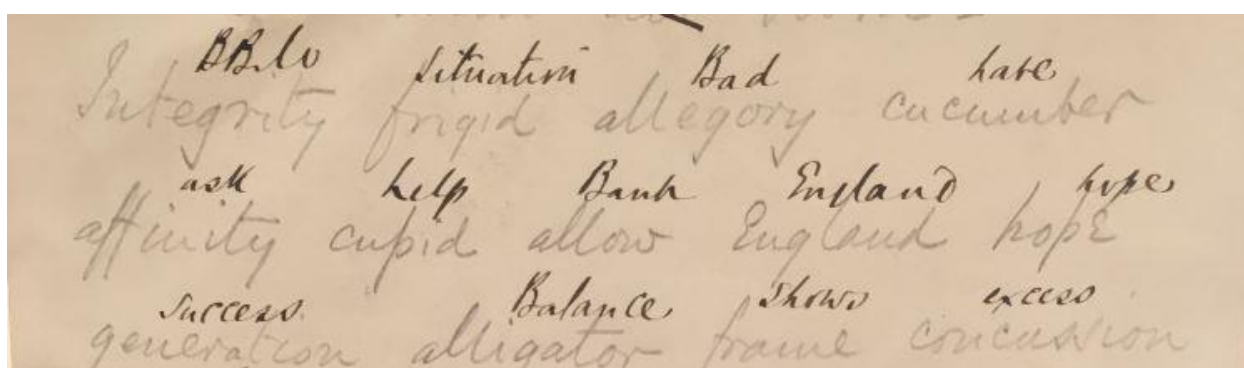 BB&Co situation Bad have
Integrity frigid allegory cucumber
ask help Bank England hope
affinity cupid allow England hope
success Balance shows excess
generation alligator frame concussion